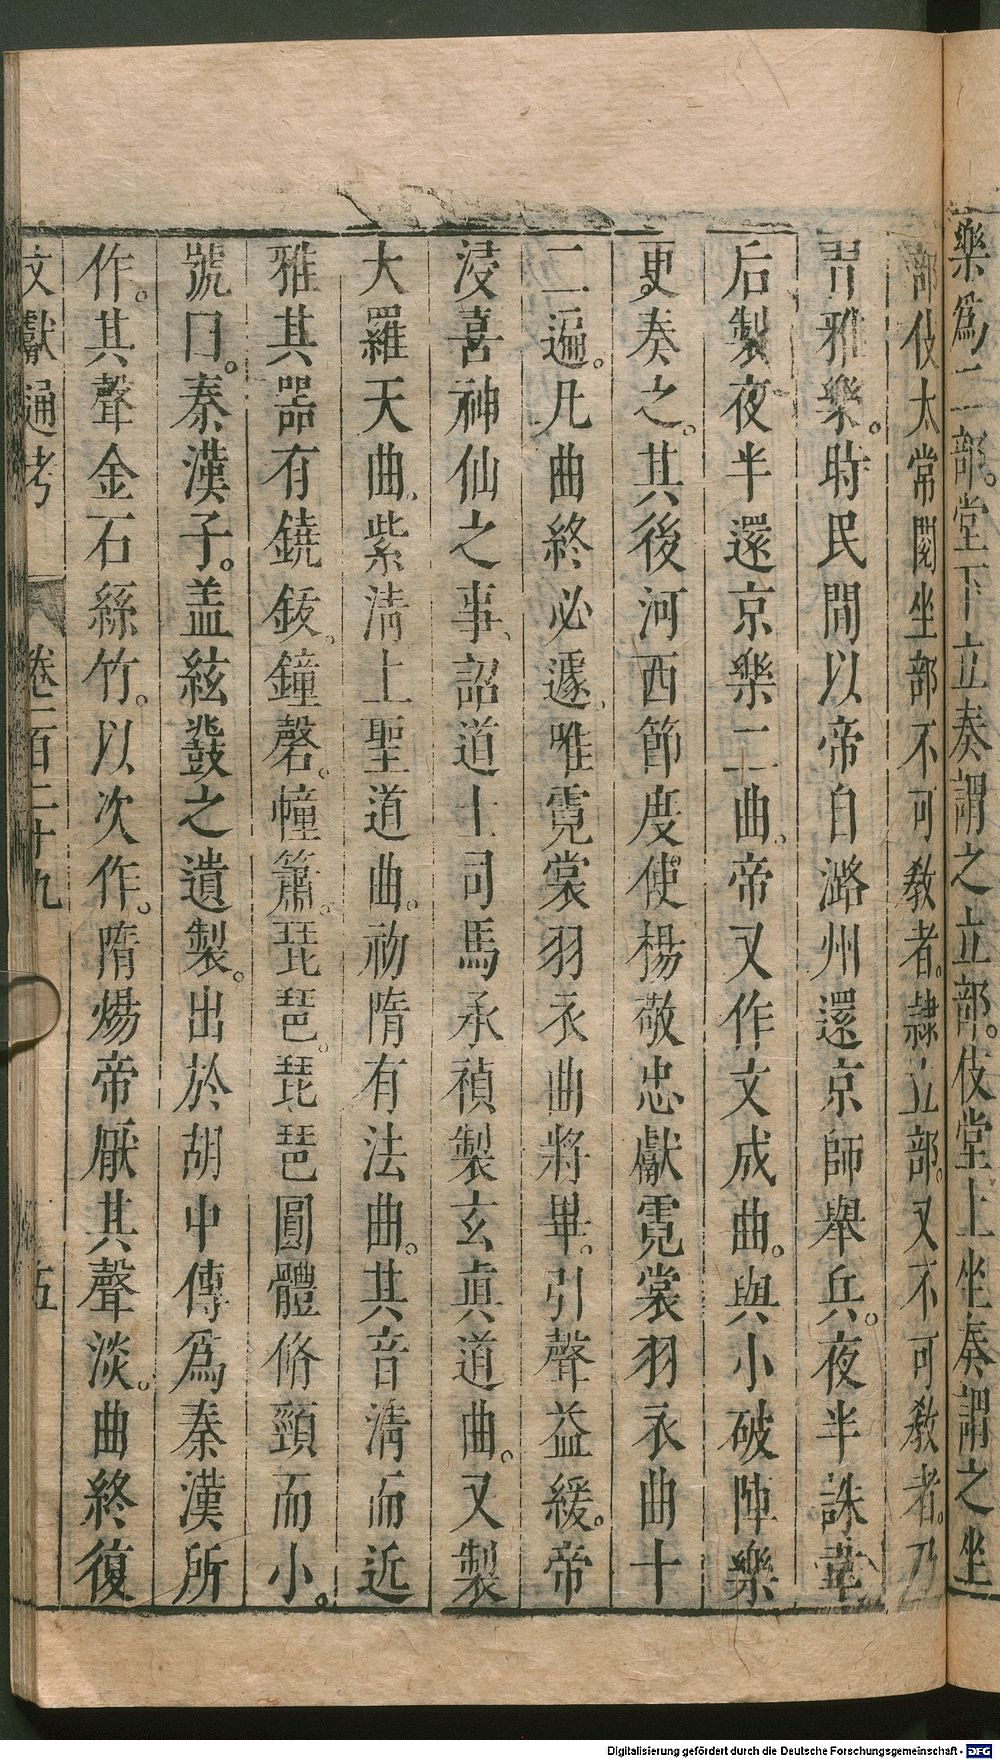 樂爲二部。堂下立奏謂之立部。伎堂上坐奏謂之坐
部伎太常閱坐部不可敎者。隷立部。又不可敎者。乃
習雅樂。時民間以帝自潞州還京師舉兵。夜半誅韋
后製夜半還京樂二曲、帝又作文成曲。與小破陣樂
更奏之。其後河西節度使楊敬忠獻霓裳羽衣曲十
二遍。凡曲終必遽、唯霓裳羽衣曲將畢。引聲益緩。帝
浸喜神仙之事、詔道士司馬承禎製玄眞道曲。又製
大羅天曲、紫淸上聖道曲。初隋有法曲。其音淸而近
雅其器有鐃鈸、鐘磬。幢簫。琵琶。琵琶圓體脩頸而小。
號曰。秦漢子。盖絃鼗之遺製。出於胡中傳爲秦漢所
作。其聲金石絲竹。以次作。隋煬帝厭其聲淡。曲終復
文獻通考 卷一百二十九 五
Digitalisierung gefördert durch die Deutsche Forschungsgemeinschaft - DFG